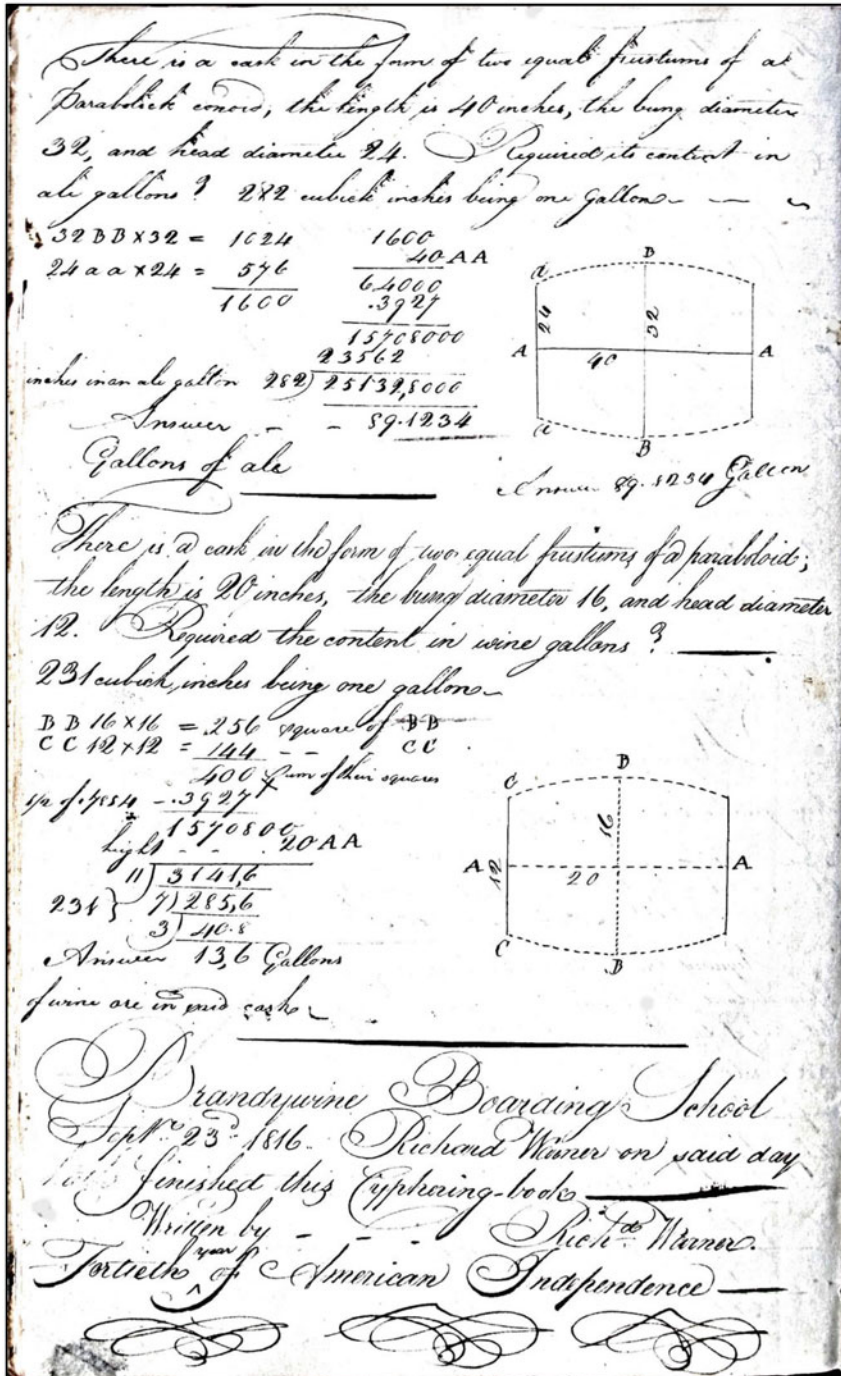 There is a cask in the form of two equal frustums of a
Parabolick conoid, the length is 40 inches, the bung diameter
32, and head diameter 24. Required its content in
ale gallons? 282 cubick inches being one Gallon
32 BB × 32 = 1024
24 a a × 24 = 576
1600
1600
40 AA
64000
.3927
15708000
23562
inches in an ale gallon 282) 25132,8000
Answer - - 89.1234
Gallons of ale
a
B
24
32
A
40
A
a
B
Answer 89.1234 Gallon
There is a cask in the form of two equal frustums of a paraboloid;
the length is 20 inches, the bung diameter 16, and head diameter
12. Required the content in wine gallons?
231 cubick inches being one gallon
B B 16 × 16 = 256 square of BB
C C 12 × 12 = 144 - - CC
400 Sum of their squares
1/2 of .7854 - .3927
1570800
hight - - 20 AA
11) 3141,6
231} 7) 285,6
3) 40.8
Answer 13,6 Gallons
of wine are in said cask
C
B
16
A
12
20
A
C
B
Brandywine Boarding School
Sepr. 23d 1816. Richard Warner on said day
finished this Cyphering-book
Written by - - - Richd. Warner.
Fortieth year of American Independence